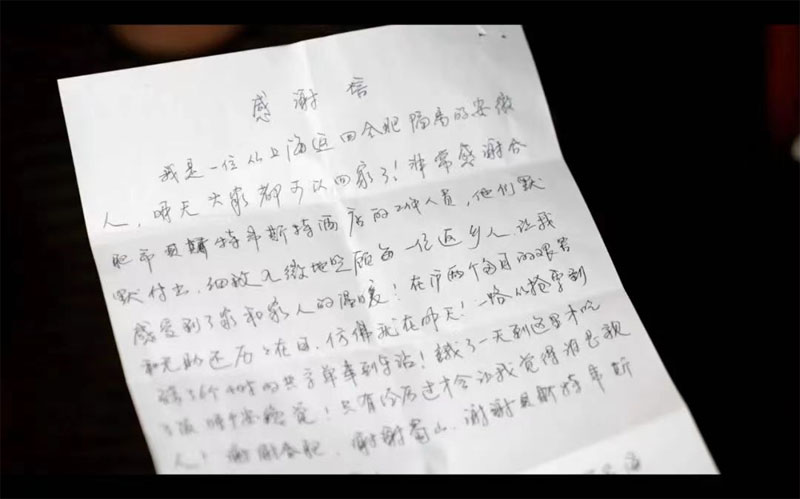 感谢信
我是一位从上海返回合肥隔离的安徽
人，明天大家都可以回家了！非常感谢合
肥市贝斯特韦斯特酒店的工作人员，他们默
默付出，细致入微地照顾每一位返乡人，让我
感受到了家和家人的温暖！在沪两个多月的艰苦
和无助还历历在目，仿佛就在昨天！一路从抢票到
骑了6个小时的共享单车到车站！饿了一天到这里才吃
了顿
觉！只有经历过才会让我觉得谁是亲
人！谢谢合肥，谢谢蜀山，谢谢贝斯特韦斯